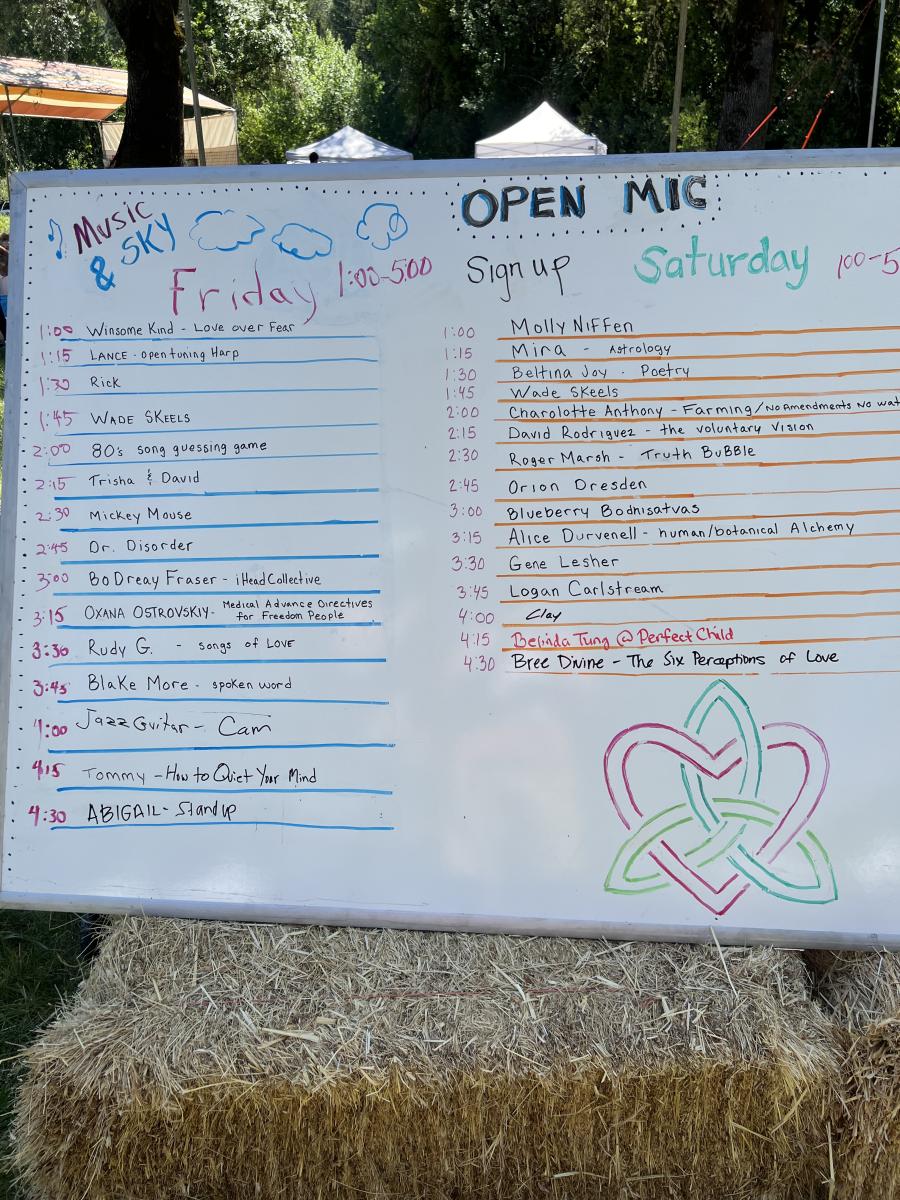 Music
& SKY
OPEN MIC
Friday 1:00-5:00
Sign up Saturday 1:00-5
1:00 Winsome Kind - Love over Fear
1:15 LANCE - open tuning Harp
1:30 Rick
1:45 WADE SKEELS
2:00 80's song guessing game
2:15 Trisha & David
2:30 Mickey Mouse
2:45 Dr. Disorder
3:00 Bo Dreay Fraser - iHeadCollective
3:15 OXANA OSTROVSKIY - Medical Advance Directives
for Freedom People
3:30 Rudy G. - songs of LOVE
3:45 Blake More - spoken word
4:00 Jazz Guitar - Cam
4:15 Tommy - How to Quiet Your Mind
4:30 ABIGAIL - Standup
1:00 Molly Niffen
1:15 Mira - Astrology
1:30 Beltina Joy . Poetry
1:45 Wade Skeels
2:00 Charolotte Anthony - Farming/No Amendments No wat
2:15 David Rodriguez - the voluntary vision
2:30 Roger Marsh - Truth BuBBle
2:45 Orion Dresden
3:00 Blueberry Bodhisatvas
3:15 Alice Durvenell - human/botanical Alchemy
3:30 Gene Lesher
3:45 Logan Carlstream
4:00 Clay
4:15 Belinda Tung @ Perfect Child
4:30 Bree Divine - The Six Perceptions of Love